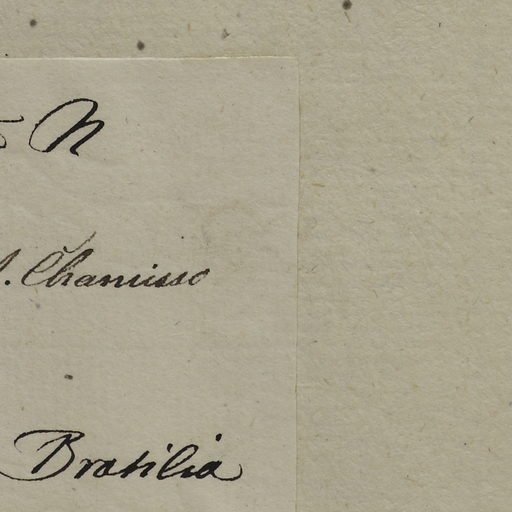 N
. Chamisso
Brasilia